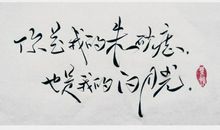 你是我的朱砂痣、
也是我的白月光.